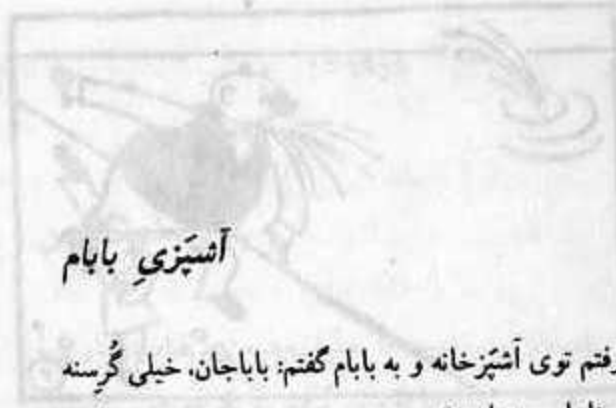 آشپَزیِ بابام
رفتم توی آشپَزخانه و به بابام گفتم: باباجان، خیلی گُرِسنه